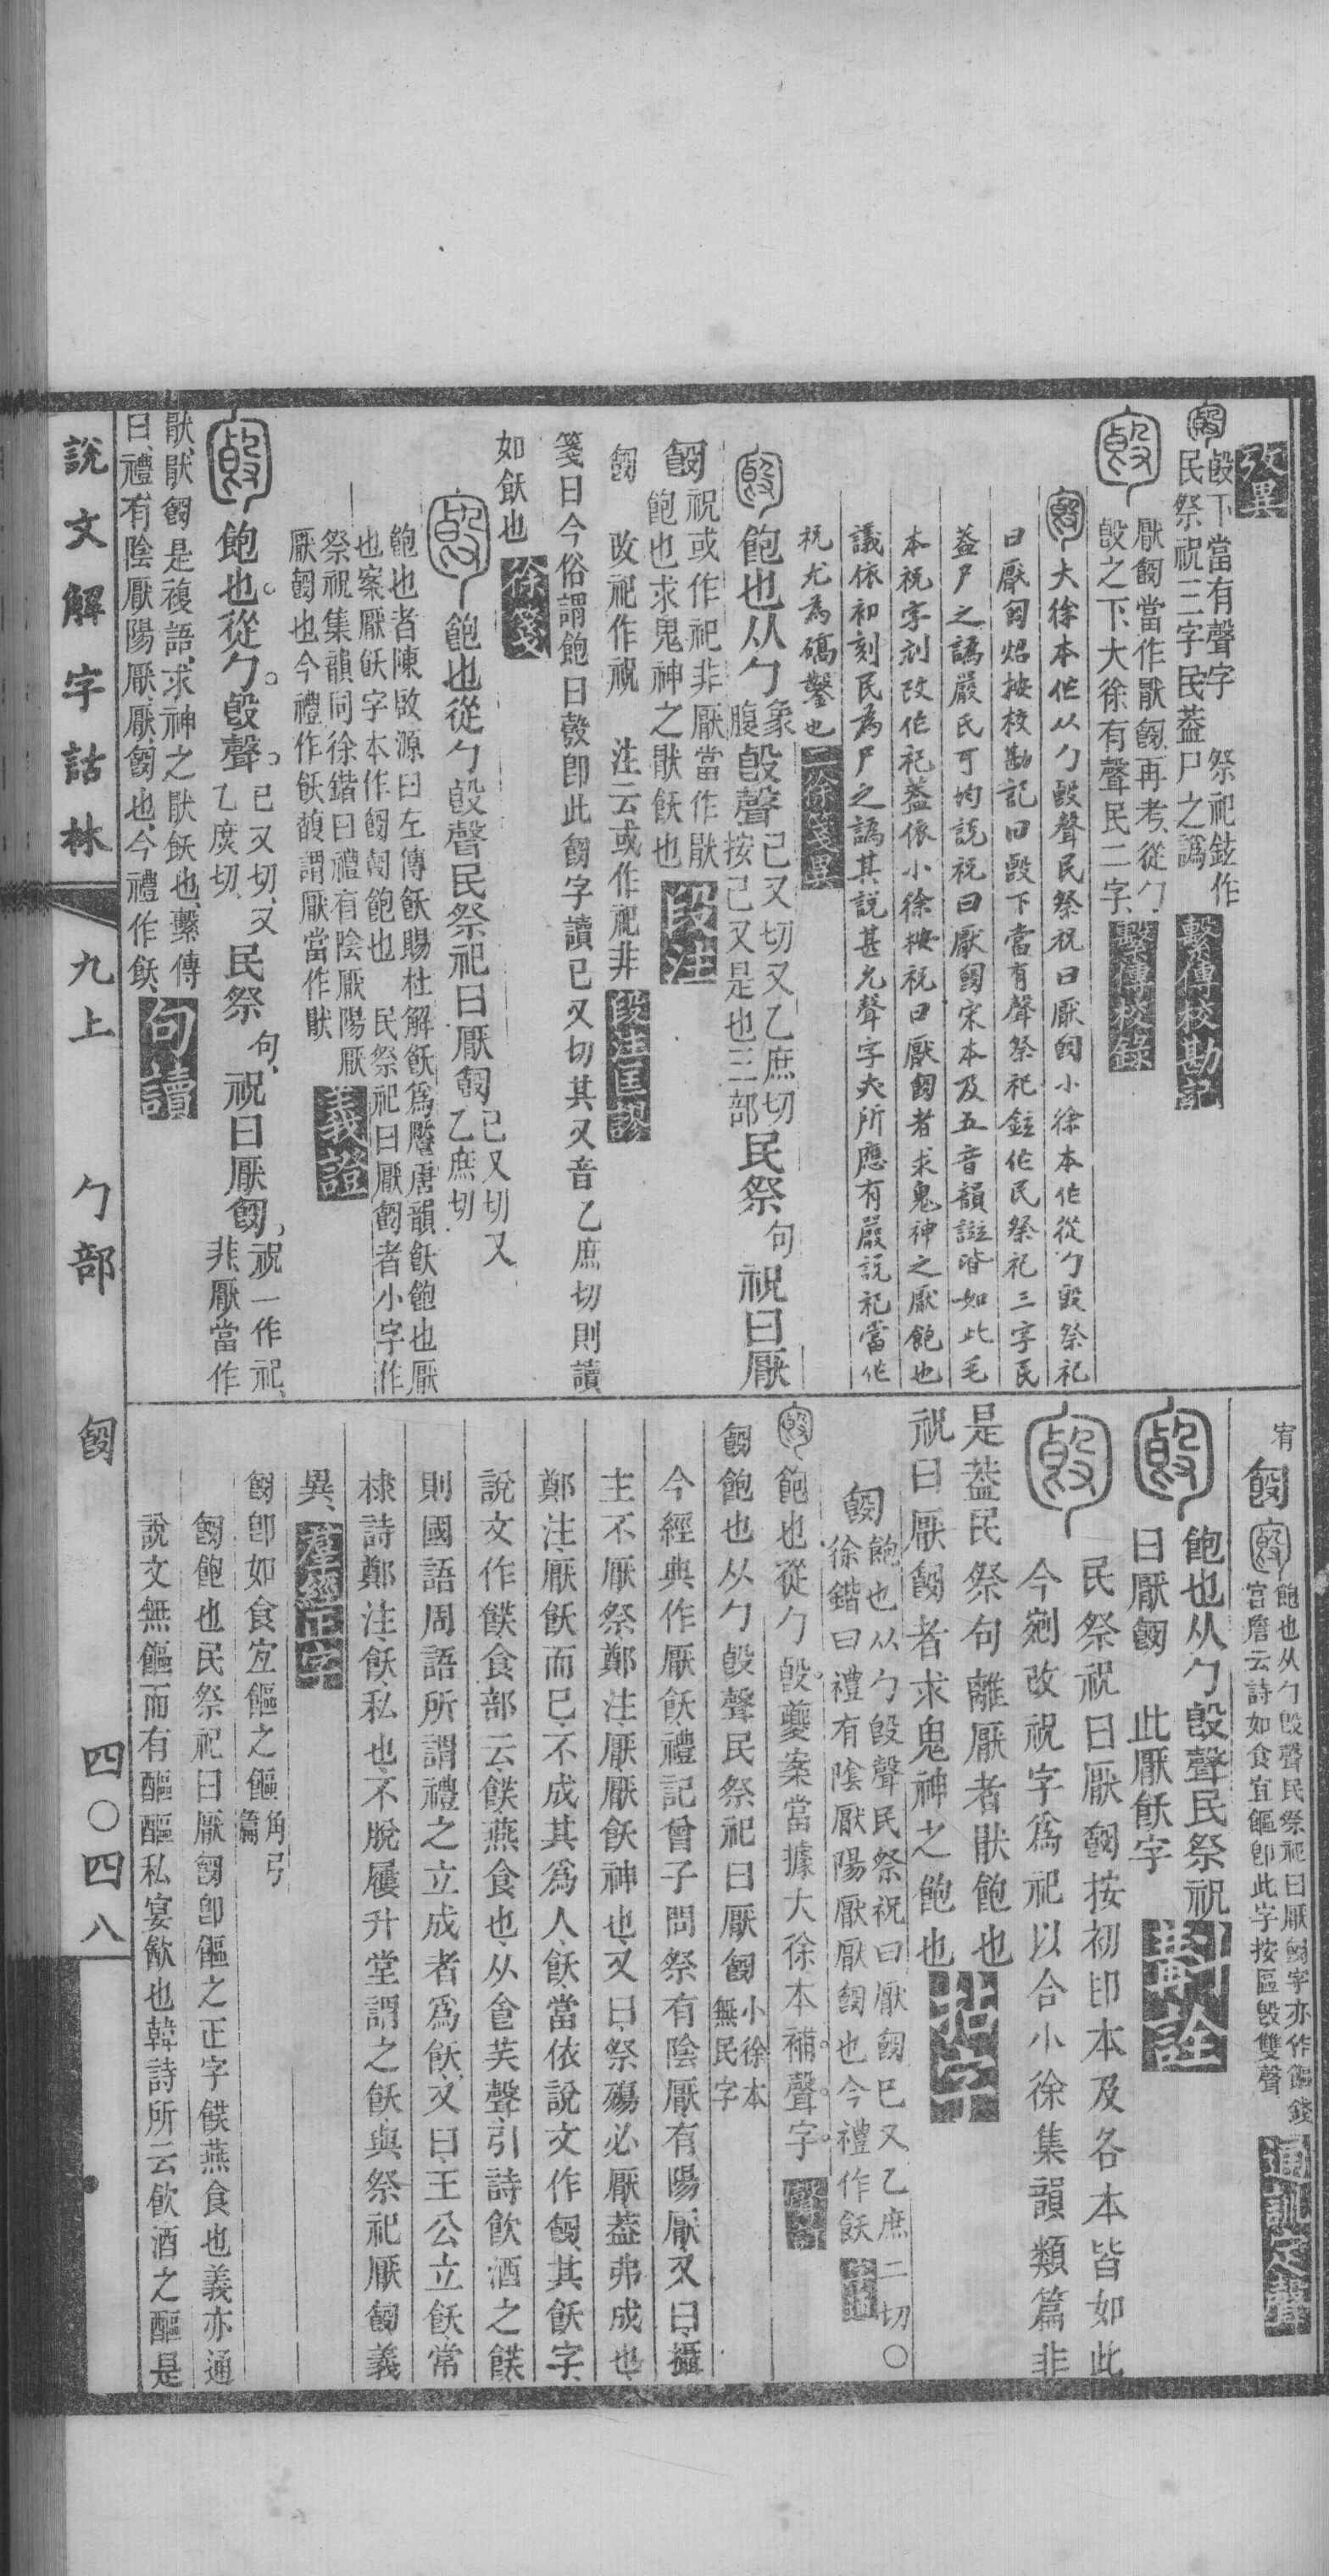 攷異
㲃下當有聲字　祭祀鉉作
民祭祝三字民葢尸之譌　繫傳校勘記
厭䭕當作猒䭕再考從勹
㲃之下大徐有聲民二字　繫傳校錄
大徐本作从勹㲃聲民祭祝曰厭䭕小徐本作從勹㲃祭祀
曰厭䭕炤按校勘記曰㲃下當有聲祭祀鉉作民祭祀三字民
葢尸之譌嚴氏可均說祝曰厭䭕宋本及五音韻譜皆如此毛
本祝字剜改作祀葢依小徐按祝曰厭䭕者求鬼神之厭飽也
議依初刻民為尸之譌其説甚允聲字夾所應有嚴説祀當作
祝尤為碻鑿也　二徐箋異
飽也从勹象腹㲃聲己又切又乙庶切按己又是也三部民祭句祝曰厭
䭕祝或作祀非厭當作猒
飽也求鬼神之猒飫也　段注
䭕　改祀作祝　注云或作祀非　段注匡謬
箋曰今俗謂飽曰㲃即此䭕字讀已又切其又音乙庶切則讀
如飫也　徐箋
飽也從勹㲃聲民祭祀曰厭䭕已又切又乙庶切
飽也者陳啟源曰左傳飫賜杜解飫爲饜唐韻飫飽也厭
也案厭飫字本作䭕䭕飽也　民祭祀曰厭䭕者小字作
祭祝集韻同徐鍇曰禮有陰厭陽厭
厭䭕也今禮作飫馥謂厭當作猒　義證
飽也從勹㲃聲已又切又乙庶切民祭句祝曰厭䭕祝一作祀非厭當作
猒猒䭕是複語求神之猒飫也繫傳
曰禮有陰厭陽厭厭䭕也今禮作飫　句讀
宥
䭕飽也从勹㲃聲民祭祀曰厭䭕字亦作饇錢
宫詹云詩如食宜饇卽此字按區㲃雙聲　通訓定聲
飽也从勹㲃聲民祭祝
曰厭䭕　此厭飫字　斠詮
民祭祝曰厭䭕按初印本及各本皆如此
今剜改祝字爲祀以合小徐集韻類篇非
是葢民祭句離厭者猒飽也
祝曰厭䭕者求鬼神之飽也
䭕飽也从勹㲃聲民祭祝曰厭䭕已又乙庶二切〇
徐鍇曰禮有陰厭陽厭厭䭕也今禮作飫
飽也從勹㲃夔案當據大徐本補聲字
䭕飽也从勹㲃聲民祭祀曰厭䭕小徐本無民字
今經典作厭飫禮記曾子問祭有陰厭有陽厭又曰攝
主不厭祭鄭注厭厭飫神也又曰祭殤必厭葢弗成也
鄭注厭飫而已不成其爲人飫當依說文作䭕其飫字
說文作䬼食部云䬼燕食也从𠊊芺聲引詩飲酒之䬼
則國語周語所謂禮之立成者爲飫又曰王公立飫常
棣詩鄭注飫私也不脫屨升堂謂之飫與祭祀厭䭕義
異　羣經正字
䭕卽如食宐饇之饇角弓篇
䭕飽也民祭祀曰厭䭕卽饇之正字䬼燕食也義亦通
說文無饇而有醧醧私宴飲也韓詩所云飲酒之醧是
說文解字詁林　九上　勹部　䭕　四〇四八